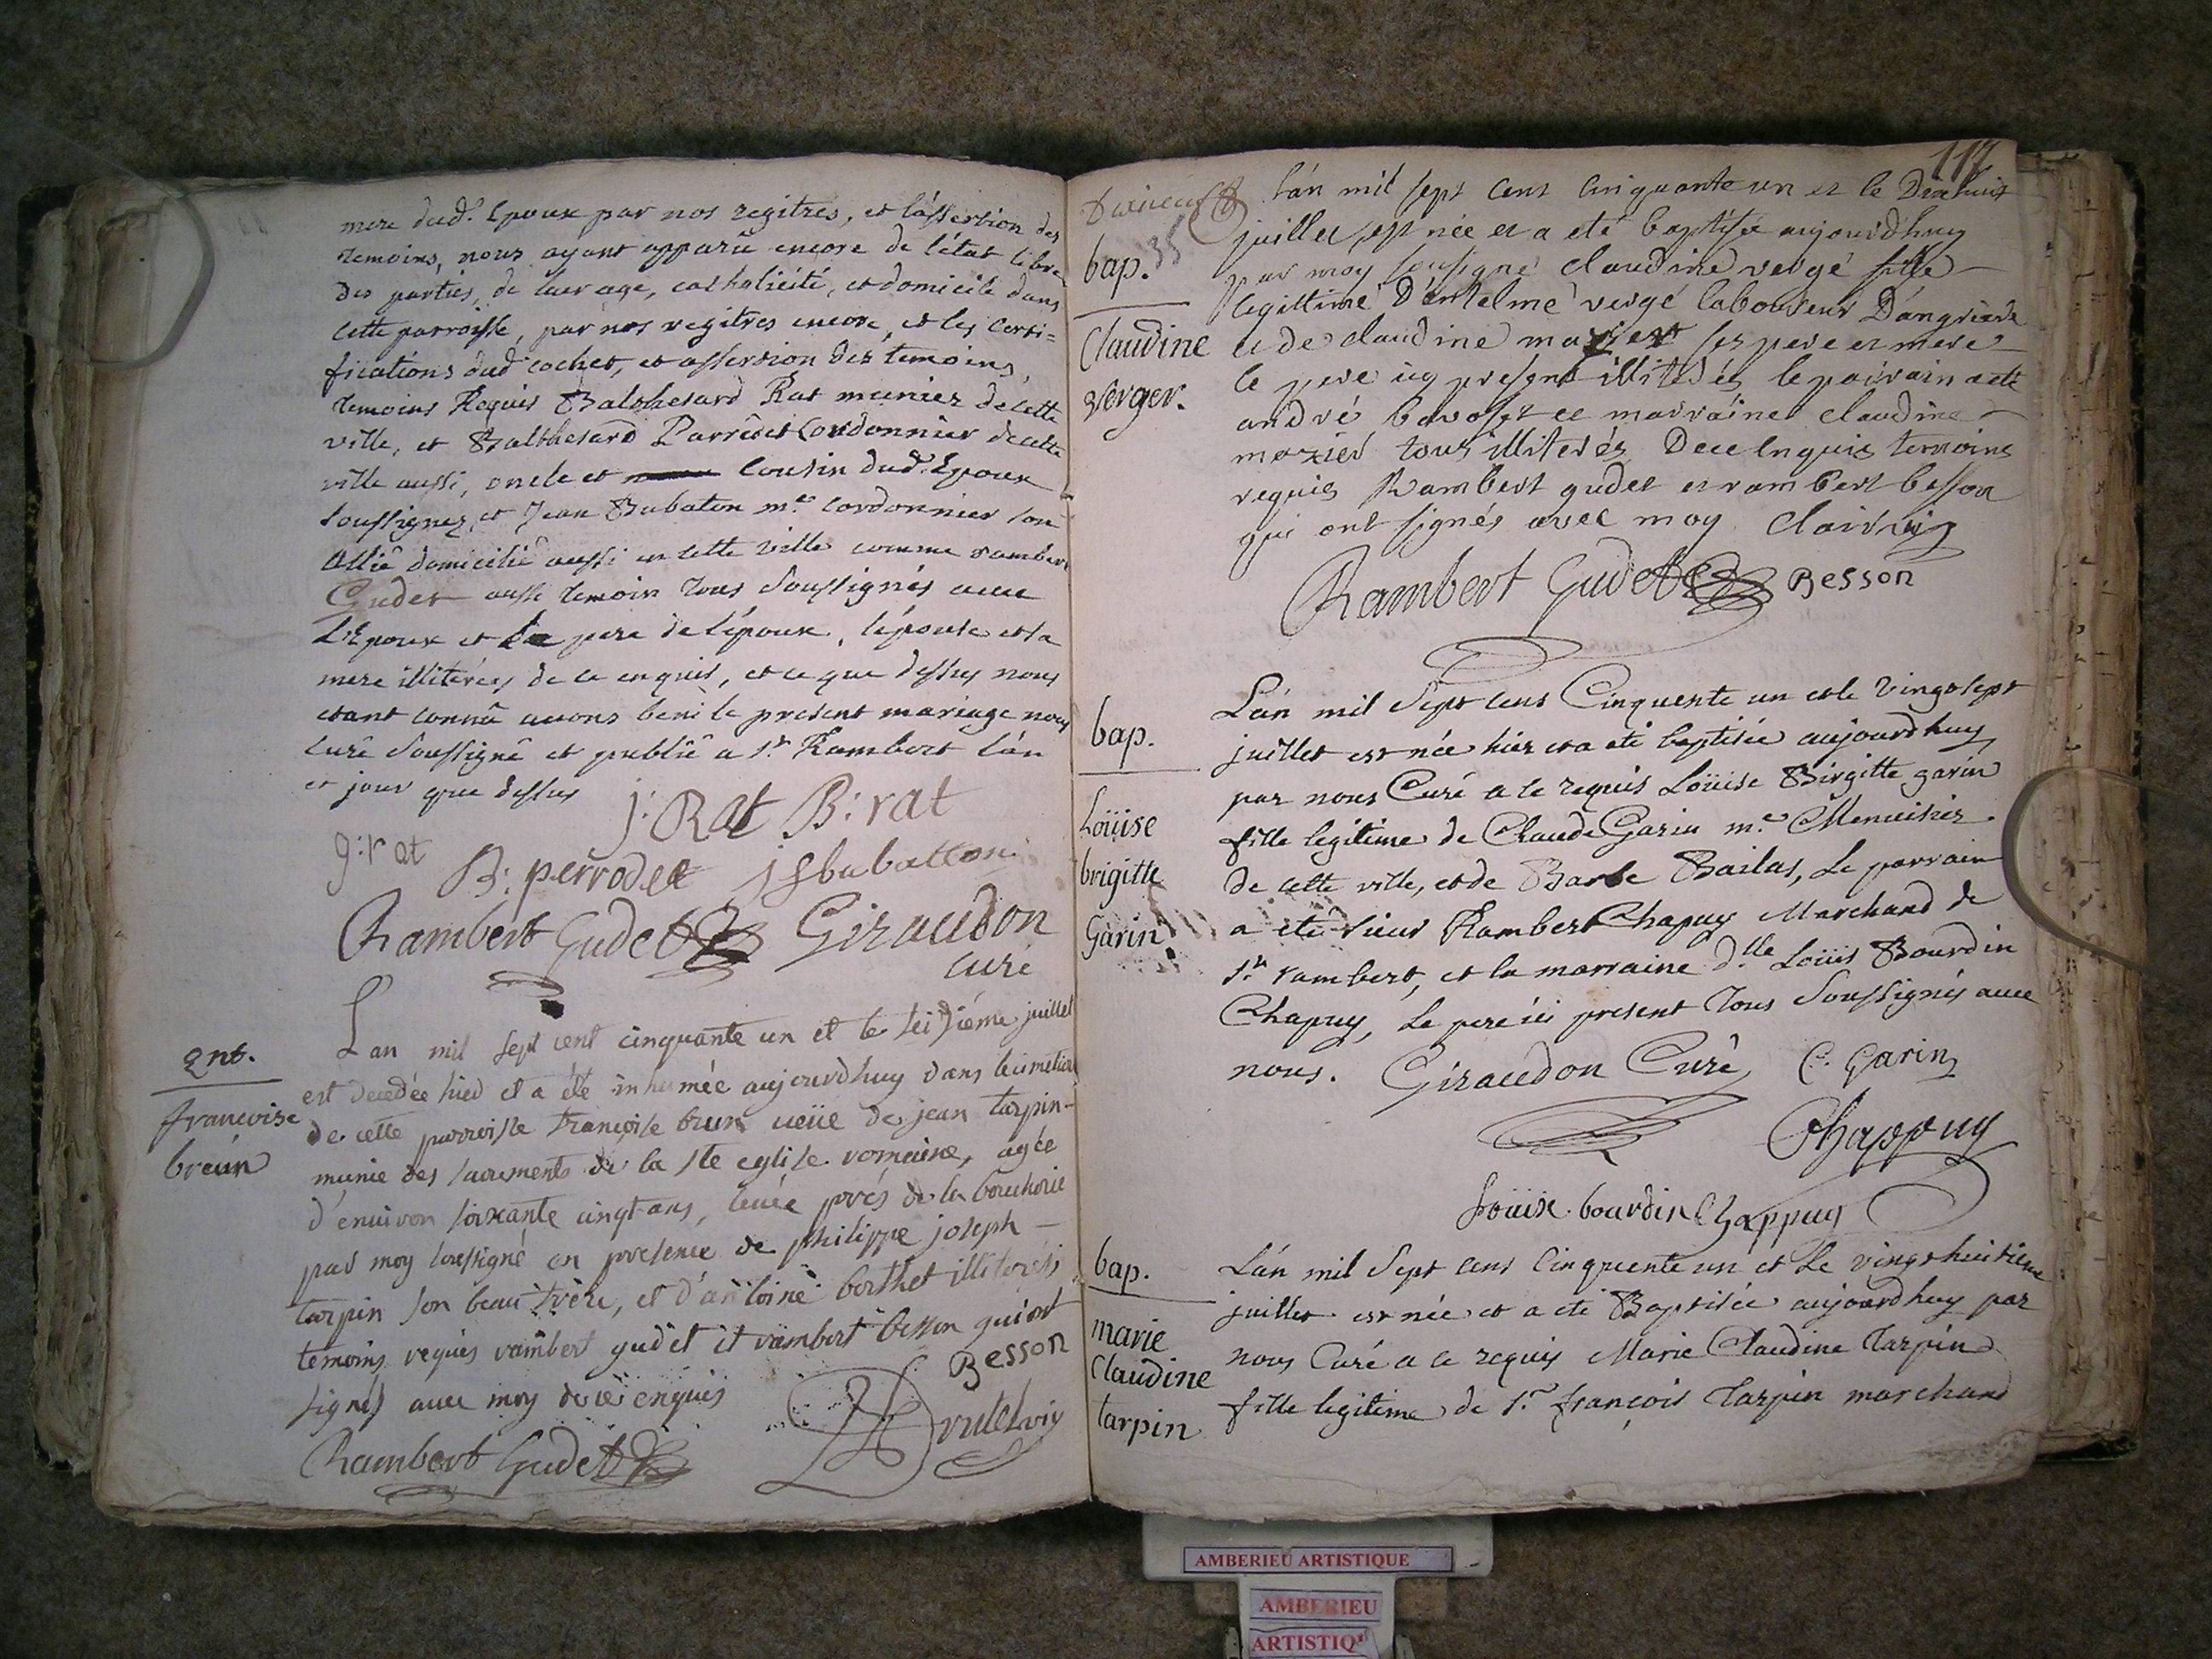 mere dud. Epoux par nos regitres, et l'assertion des
temoins, nous ayant apparû encore de l'état libre
des parties, de leur age, catholicité, et domicile dans
cette parroisse, par nos regitres encore, et les certi=
fications dud cochet, et assertion des temoins,
temoins Requis Balthesard Rat munier de cette
ville, et Balthesard Parrodet Cordonnier de cette
ville aussi, oncle et Cousin dud. Epoux
soussignez, et Jean Bubaton me. cordonnier son
allié domicilié aussi en cette ville comme rambert
Gudet aussi temoin tous soussignés avec
L'Epoux et le pere de l'époux, l'épouse et sa
mere illiterés de ce enquis, et ce que dessus nous
etant connû avons beni le present mariage nous
curé soussigné et publié a st. Rambert l'an
et jour que dessus
J: Rat B: rat
g: rat
B: perrodet J bubatton
Rambert Gudet Giraudon
curé
Ent.
francoise
breun
L'an mil sept cent cinquante un et le seizième juillet
est decedée hier et a été inhumée aujourdhuy dans le cimetiere
de cette parroisse françoise brun veüe de jean tarpin-
munie des sacrements de la ste eglise romaine, agée
d'environ soixante cinqt ans, levée prés de la boucherie
par moy soussigné en presence de philippe joseph -
tarpin son beau frère, et d'antoine berthet illiterés
temoins requis rambert gudet et rambert besson qui ont
signés avec moy de ce enquis
Besson
Rambert Gudet
117
35
bap.
Claudine
verger.
L'an mil sept cent cinquante un et le Dixhuit
juillet, est née et a eté baptisée aujourdhuy
par moy sousigné claudine vergé fille
legittime D'entelme vergé laboureur D'angriere
et de claudine mozier ses pere et mere
le pere icy present illiterés le pairain a eté
andré bavoset et mairaine claudine
mozier tous illiterés De ce enquis temoins
requis Rambert gudet et rambert besson
qui ont signés avec moy
Rambert Gudet Besson
bap.
Loüise
brigitte
Garin
L'an mil Sept cens Cinquente un et le vingt sept
juillet est née hier et a eté baptisée aujourdhuy
par nous Curé a ce requis Loüise Birgitte garin
fille legitime de Claude Garin me. Menuisier.
de cette ville, et de Barbe Bailas, Le parrain
a eté sieur Rambert Chapuy Marchand de
st. rambert, et la marraine dlle Loüis Bourdin
Chapuy, Le pere ici present Tous Soussignés avec
nous. Giraudon Curé C. Garin
Chappuy
Loüise bourdin Chappuy
bap.
marie
Claudine
tarpin
L'an mil Sept cens Cinquente un et Le vingt huitieme
juillet est née et a eté Baptisée aujourdhuy par
nous Curé a ce requis Marie Claudine Tarpin
fille legitime de sr. françois Tarpin marchand
AMBERIEU ARTISTIQUE
AMBERIEU
ARTISTIQ